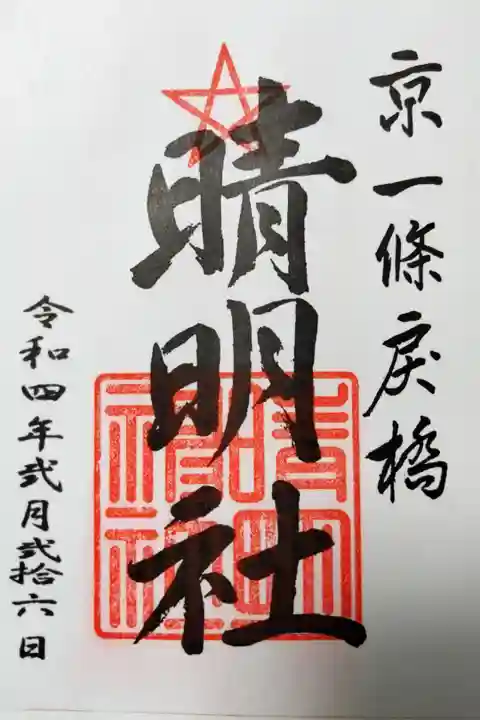 京一條戻橋
晴明社
令和四年弐月弐拾六日
晴明神社